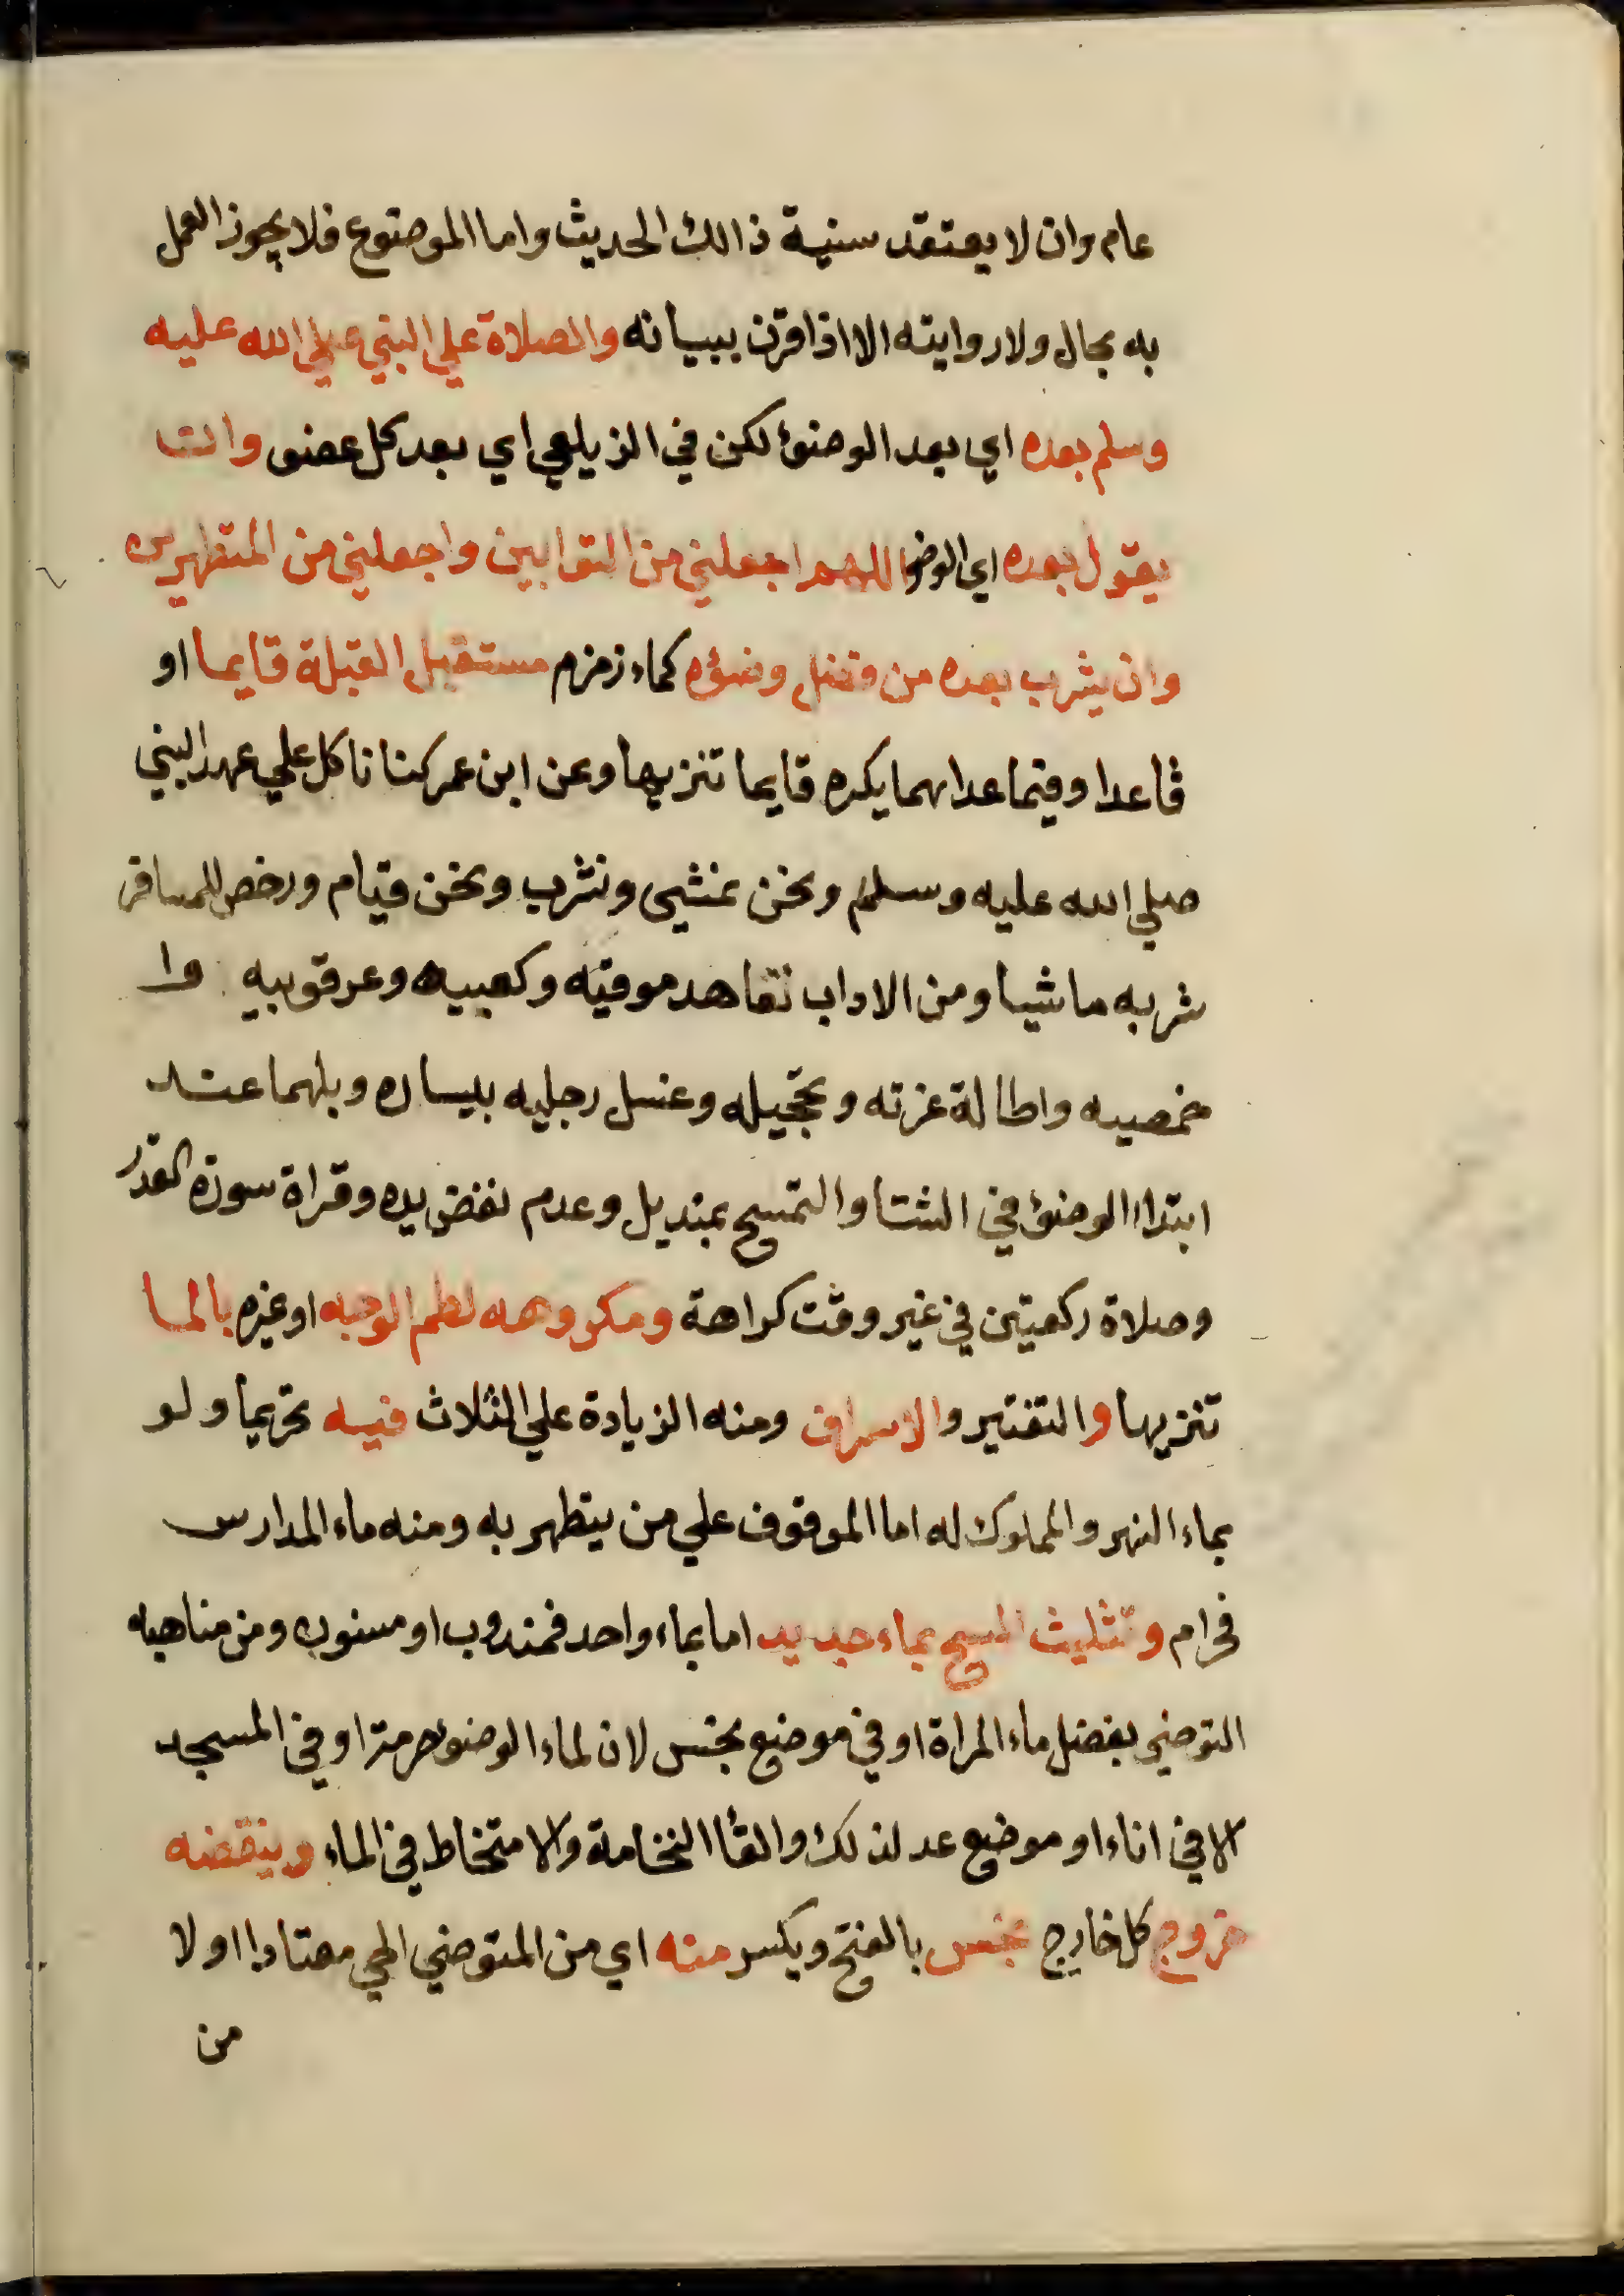 عام وان لا يعتقد سنية ذالك الحديث واما الموضوع فلا يجوز العمل
به بحال ولا روايته الا اذا قرن ببيانه والصلاة علي النبي صلي الله عليه
وسلم بعده اي بعد الوضوء لكن في الزيلعي اي بعد كل عضو وان
يقول بعده اي الوضو اللهم اجعلني من التوابين واجعلني من المتطهرين
وان يشرب بعده من فضل وضوءه كماء زمزم مستقبل القبلة قايما او
قاعدا وفيما عداهما يكره قايما تنزيها وعن ابن عمر كنا ناكل علي عهد النبي
صلي الله عليه وسلم ونحن نمشي ونشرب ونحن قيام ورخص للمسافر
شربه ماشيا ومن الاداب تعاهد موقيه وكعبيه وعرقوبيه وا
خمصيه واطالة غرته وتحجيله وغسل رجليه بيساره وبلهما عند
ابتداء الوضوء في الشتا والتمسح بمنديل وعدم نفض يده وقراة سورة القدر
وصلاة ركعتين في غير وقت كراهة ومكروهه لطم الوجه او غيره بالما
تنزيها والتقتير والاسراف ومنه الزيادة علي الثلاث فيه تحريما ولو
بماء النهر والمملوك له اما الموقوف علي من يتطهر به ومنه ماء المدارس
فحرام وتثليث المسح بماء جديد اما بماء واحد فمندوب او مسنون ومن مناهيه
التوضي بفضل ماء المراة او في موضع نجس لان لماء الوضوء حرمة او في المسجد
الا في اناء او موضع عد لذلك والقاء النخامة والامتخاط في الماء وينقضه
خروج كل خارج نجس بالفتح ويكسر منه اي من المتوضي الحي معتادا اولا
من